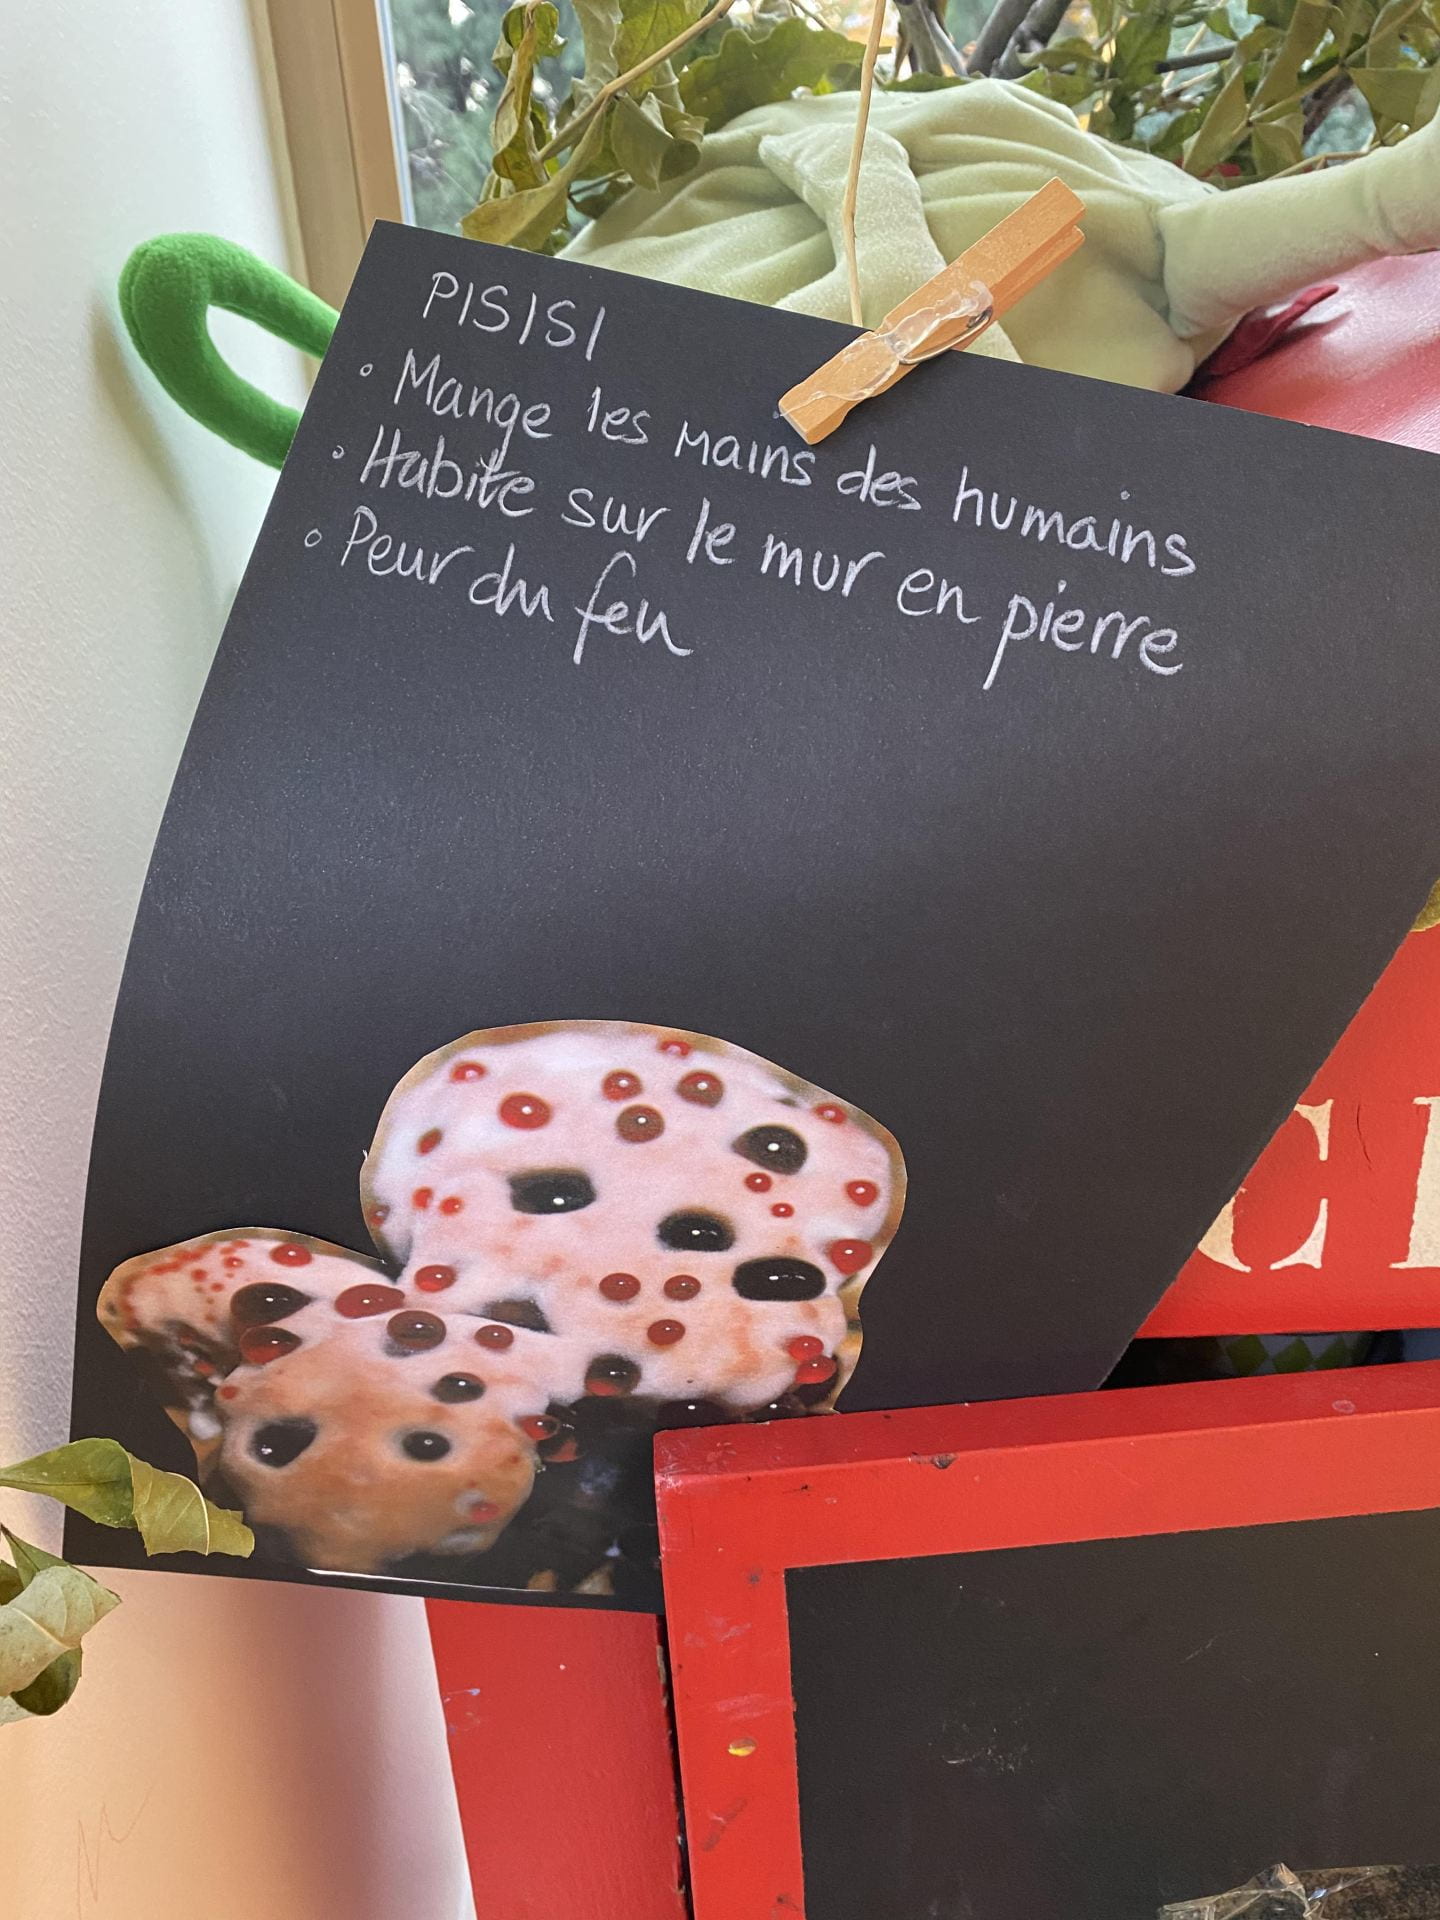 PISISI
• Mange les mains des humains
• Habite sur le mur en pierre
• Peur du feu